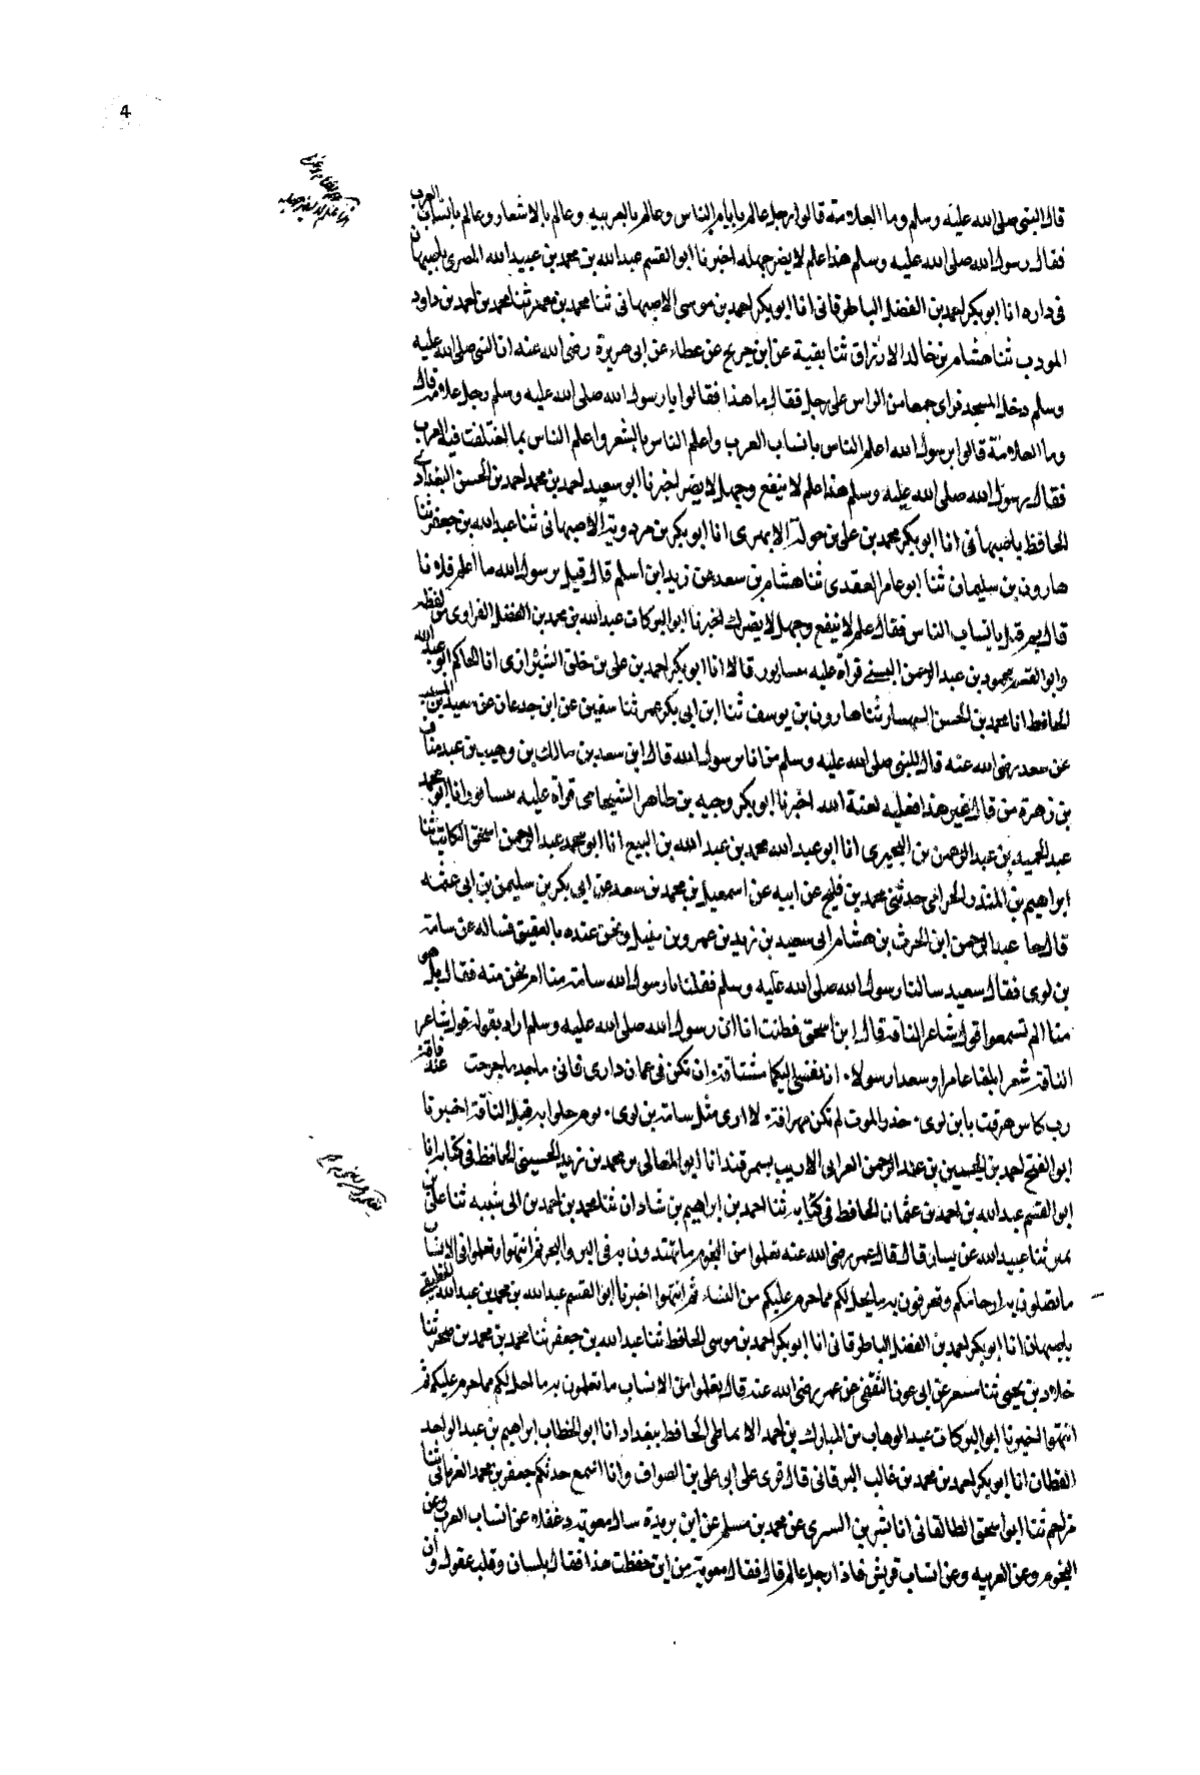 4
قال النبي صلى الله عليه وسلم وما العلامة قالوا رجل عالم بايام الناس وعالم بالعربيه وعالم بالاشعار وعالم بانساب العرب
فقال رسول الله صلى الله عليه وسلم هذا علم لا يضر جهله اخبرنا ابو القسم عبد الله بن محمد بن عبيد الله المصرى باصبهان
فى داره انا ابو بكر احمد بن الفضل الباطرقانى انا ابو بكر احمد بن موسى الاصبهانى ثنا محمد بن معمر ثنا محمد بن احمد بن داود
المودب ثنا هشام بن خالد الازراق ثنا بقية عن ابن جريج عن عطاء عن ابى هريرة رضى الله عنه ان النبى صلى الله عليه
وسلم دخل المسجد فراى جمعا من الراس على رجل فقال ما هذا فقالوا يا رسول الله صلى الله عليه وسلم رجل علامة قال
وما العلامة قالوا برسول الله اعلم الناس بانساب العرب واعلم الناس بالشعر واعلم الناس بما اختلفت فيه العرب
فقال رسول الله صلى الله عليه وسلم هذا علم لا ينفع وجهل لا يضر اخبرنا ابو سعيد احمد بن محمد احمد بن الحسن البغدادى
الحافظ باصبهانى انا ابو بكر محمد بن على بن خولة الابهرى انا ابو بكر بن مردوية الاصبهانى ثنا عبد الله بن جعفر ثنا
هارون بن سليمان ثنا ابو عامر العقدى ثنا هشام بن سعد عن زيد ابن اسلم قال قيل برسول الله ما اعلم فلانا
قال بم قيل بانساب الناس فقال علم لا ينفع وجهل لا يضرك اخبرنا ابو البركات عبد الله بن محمد بن الفضل الفراوى لفظه
وابو القسم محمود بن عبد الرحمن البستى قراة عليه قالا انا ابو بكر احمد بن على بن خلق الشيرازى انا الحاكم ابو عبد الله
الحافظ انا محمد بن الحسن ثنا هارون بن يوسف ثنا ابن ابى بكر عمر ثنا سفين عن ابن جدعان عن سعيد بن المسيب
عن سعد رضى الله عنه قال للنبى صلى الله عليه وسلم من انا رسول الله قال ابن سعد بن مالك بن وهيب بن عبد مناف
بن زهرة من قال غير هذا فعليه لعنة الله اخبرنا ابو بكر وجيه بن طاهر الشحامى قراة عليه وانا ابو محمد
عبد الحميد بن عبد الرحمن بن البحيرى انا ابو عبد الله محمد بن عبد الله بن البيع انا ابو محمد عبد الرحمن اسحق الكاتب ثنا
ابراهيم بن المنذر الحرامى حدثنى محمد بن فليح عن ابيه عن اسمعيل بن محمد بن سعد عن ابى بكر بن سليمن بن ابى
قال جا عبد الرحمن ابن الحرث بن هشام الى سعيد بن زيد بن عمرو بن نفيل ونحن عنده بالعقيق فساله عن سامة
بن لوى فقال سعيد سالنا رسول الله صلى الله عليه وسلم فقلنا يا رسول الله سامة منا ام نحن منه فقال بل هو
منا الم تسمعوا قول شاعر الناقة قال ابن اسحق فظننت انا ان رسول الله صلى الله عليه وسلم اراد بقوله قول شاعر
الناقة شعر ابلغا عامرا وسعدا رسولا ان نفسى اليكما مشتاقة ان تكن فى عمان دارى فانى ماجد ما خرجت عند فاقة
رب كاس هرقت يا ابن لوى حذر الموت لم تكن مهراقة لا ارى مثل سامة بن لوى يوم حلوا به قتيل الناقة اخبرنا
ابو الفتح احمد بن الحسين بن عبد الرحمن الاديب بسمرقند انا ابو المعالى محمد بن زيد الحسينى الحافظ فى كتابه انا
ابو القسم عبد الله بن احمد بن عثمان الحافظ فى كتابه ثنا احمد بن ابراهيم بن شاذان ثنا محمد بن احمد بن ابى شيبه ثنا على بن
ثنا عبيد الله عن يسار قال قال عمر رضى الله عنه تعلموا من النجوم ما تهتدون به فى البر والبحر ثم انتهوا وتعلموا فى الانساب
ما تصلون به ارحامكم وتعرفون به ما يحل لكم مما حرم عليكم من النساء ثم انتهوا اخبرنا ابو القسم عبد الله بن محمد بن عبد الله الخطيبى
باصبهان انا ابو بكر احمد بن الفضل الباطرقانى انا ابو بكر احمد بن موسى الحافظ ثنا عبد الله بن جعفر ثنا محمد بن محمد بن صخر ثنا
خلاد بن يحيى ثنا مسعر عن ابى عون الثقفى عن عمر رضى الله عنه قال تعلموا من الانساب ما تعلمون به ما احل لكم مما حرم عليكم ثم
انتهوا اخبرنا ابو البركات عبد الوهاب بن المبارك بن احمد الانماطى الحافظ ببغداد انا ابو الخطاب ابراهيم بن عبد الواحد
القطان انا ابو بكر احمد بن محمد بن غالب البرقانى قال قرى على ابى على بن الصواف وانا اسمع حدثكم جعفر بن محمد الفريابى ثنا
مزاحم ثنا ابو اسحق الطالقانى انا بشر بن السرى عن محمد بن مسلم عن ابن بريدة سال معوية دغفلا عن انساب العرب وعن
النجوم وعن العربيه وعن انساب قريش فاذا رجل عالم قال فقال معوية من اين حفظت هذا فقال بلسان وقلب عقول وان